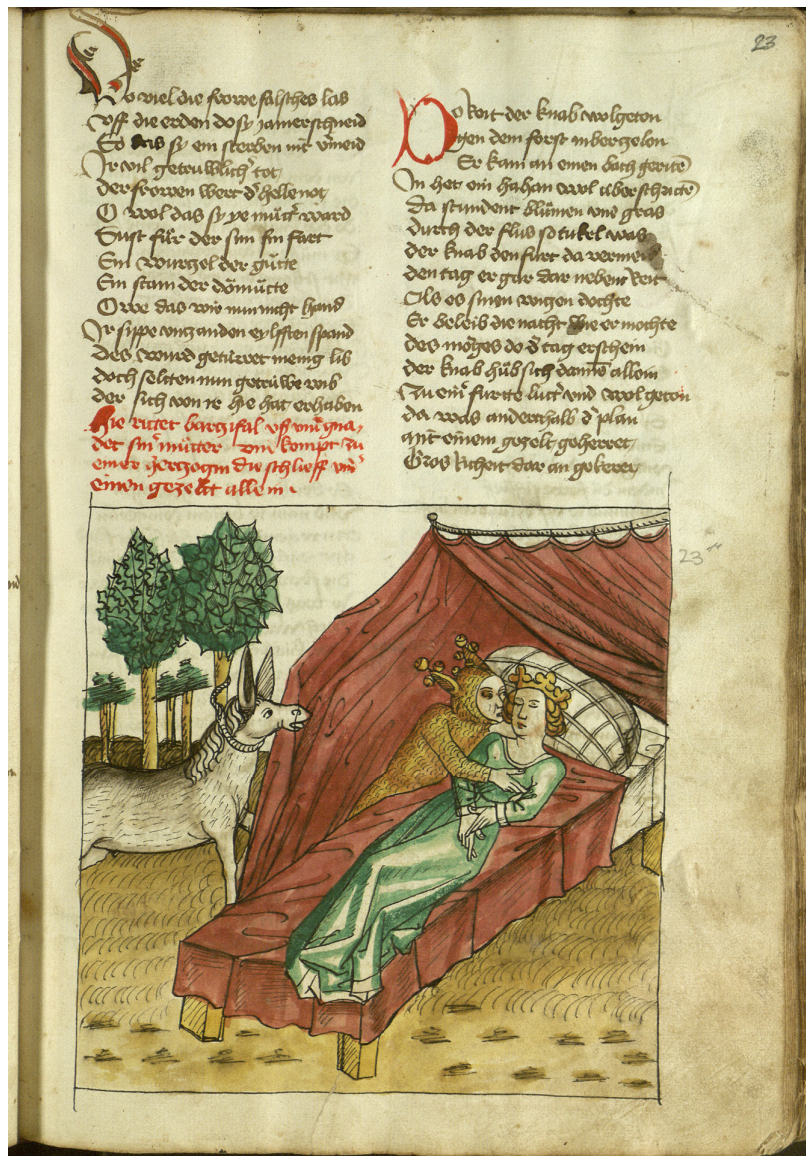 Do viel die frowe falsches las
vff die erden do sy jamer schneid
So das sy ein sterben nit vermeid
Ir vil getrúwlich tot
der frowen wert d helle not
O wol das sy ye mútt ward
Sust für der sin
Ein wurgel der gútte
Ein stam der dömútte
O we das wir nun nicht hand
Ir sippe vntz an den eylfften spand
des wurd getürret menig lib
doch soltten nun getrúwe wib
der sich von ir hie hat erhaben
Hie ritet barzifal vß vnd gna,
det sinr mütter vnd kompt zu
einer hertzogin die schlieff vnd
einen gezelt allein.
Do Reit der knab wolgeton
gen dem forst in
Er kam an einen bach geritē
In het ein hahan wol überschritē
da stundent blúmen vne gras
durch der flus so tukel was
der knab den furt da vermeid
den tag er gar dar neben Reit
Als es sinen witzen dochte
Er beleib die nacht wie er mochte
des morges do d tag erschein
der knab húb sich dannē allein
Zu einē furtte lutt vnd wolgeton
da was anderthalb d plan
mit einem gezelt geherret,
Gros Richeit dar an gekeret,
23
23